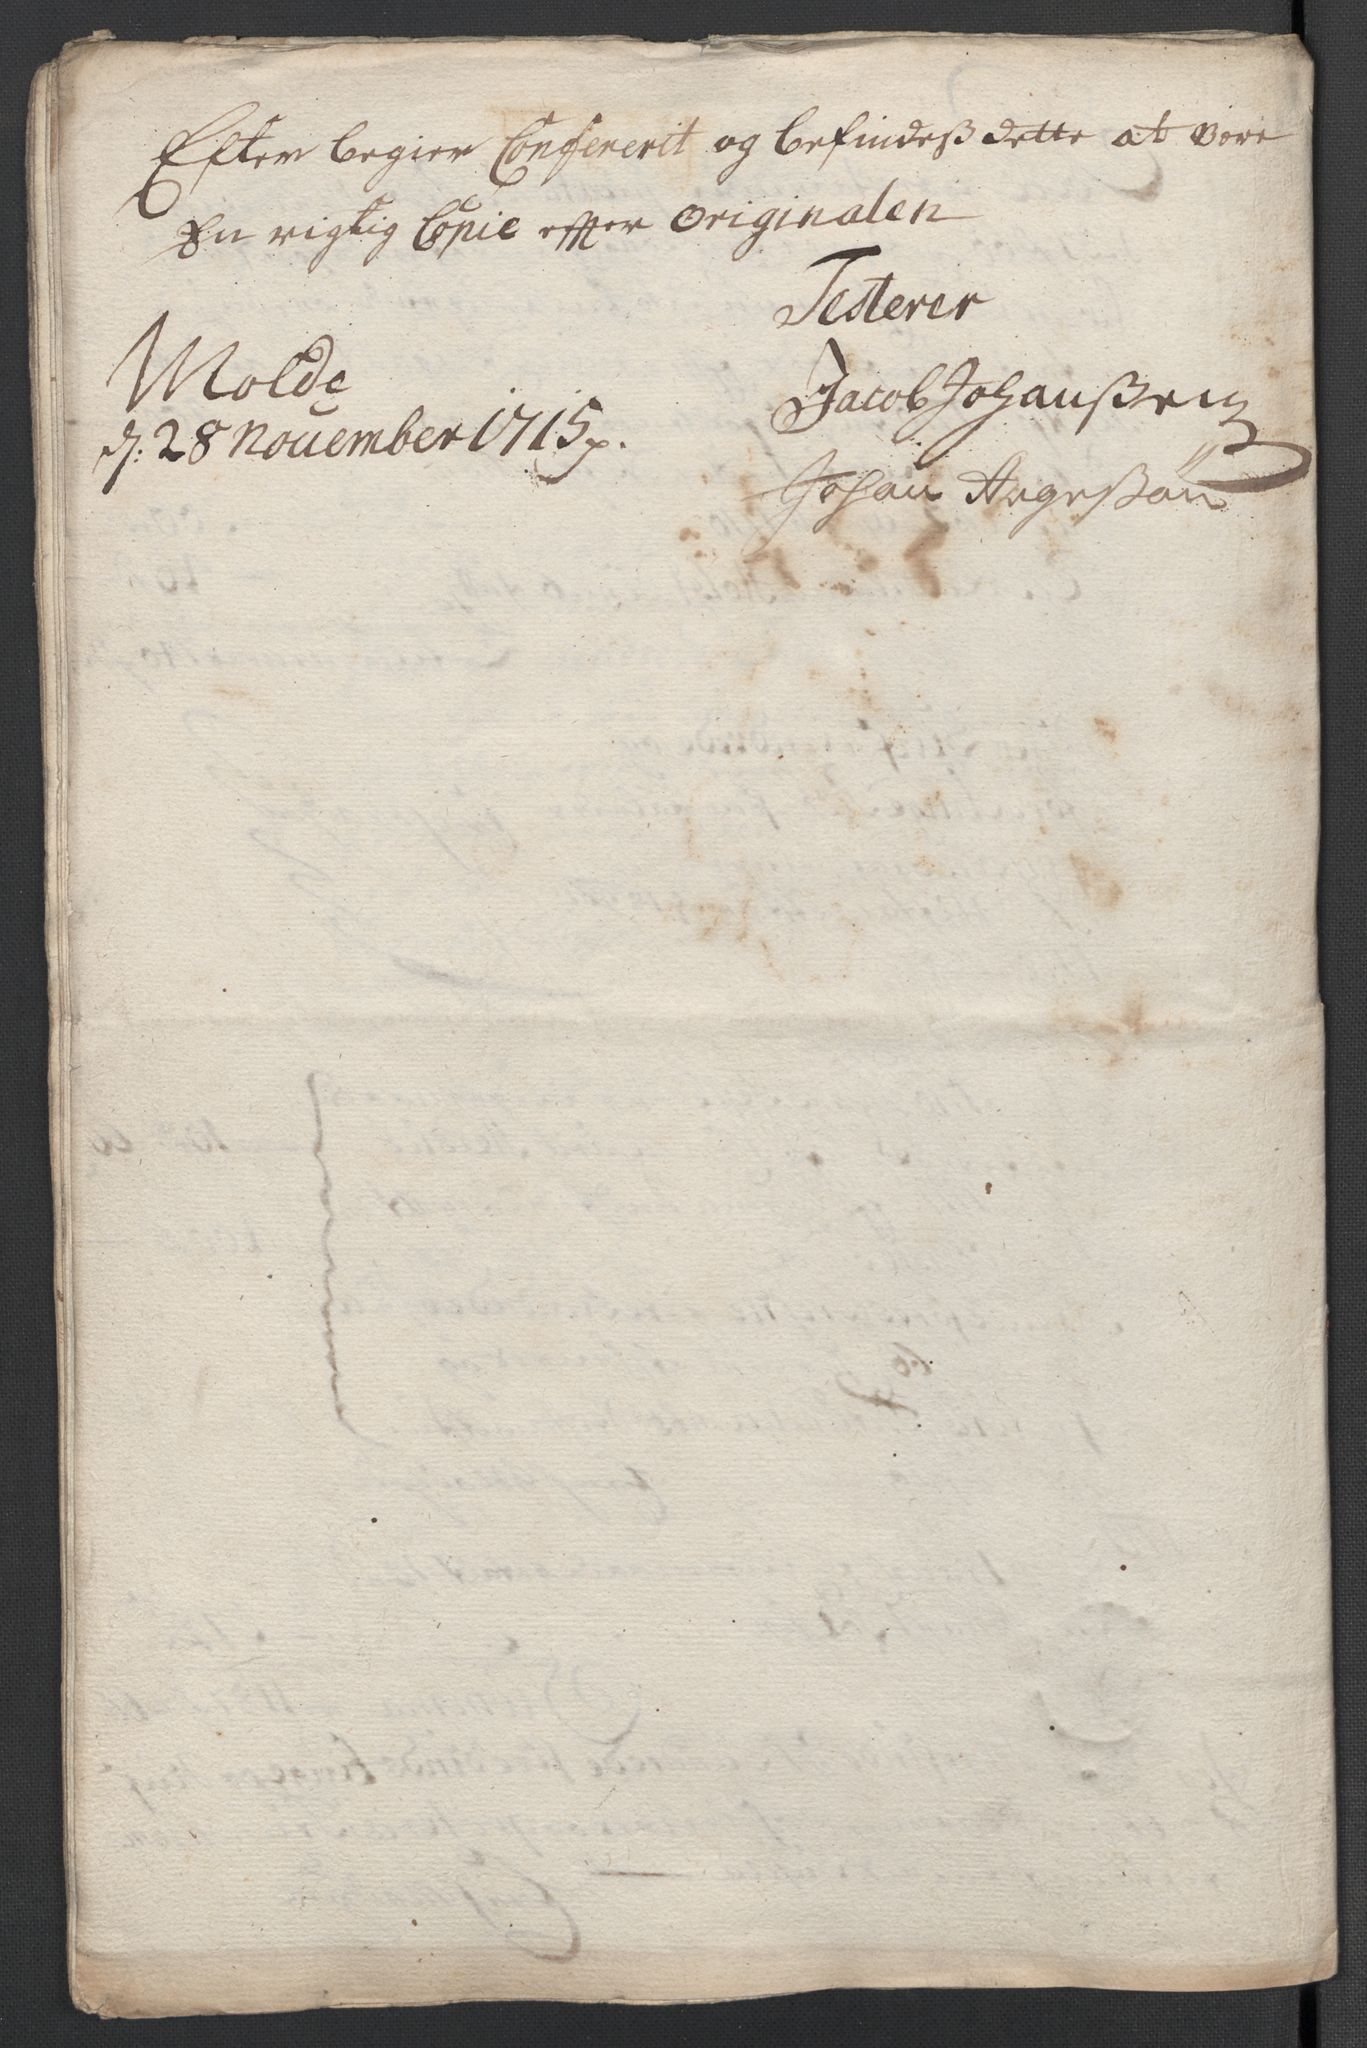 Efter begier Confererit og befindeß dette at vere
En rigtig Copie effter Originalen
Testerer
Molde
d: 28 November 1715
Jacob Johanßen
Johan